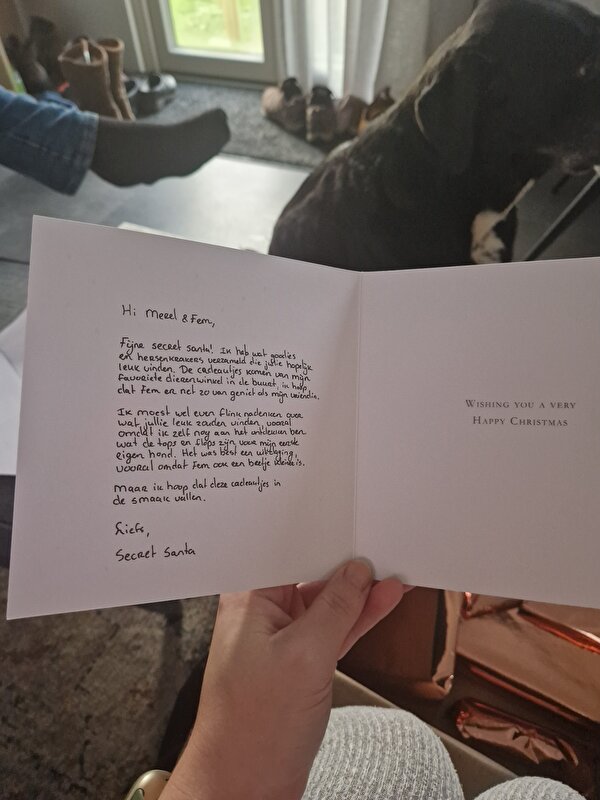 Hi Merel & Fem,
Fijne secret santa! Ik heb wat goodies
en hersenkrakers verzameld die jullie hopelijk
leuk vinden. De cadeautjes komen van mijn
favoriete dierenwinkel in de buurt, ik hoop
dat Fem er net zo van geniet als mijn vriendin.
Ik moest wel even flink nadenken over
wat jullie leuk zouden vinden, vooral
omdat ik zelf nog aan het ontdekken ben
wat de tops en flops zijn voor mijn eerste
eigen hond. Het was best een uitdaging,
vooral omdat Fem ook een beetje is.
Maar ik hoop dat deze cadeautjes in
de smaak vallen.
Liefs,
Secret Santa
WISHING YOU A VERY
HAPPY CHRISTMAS